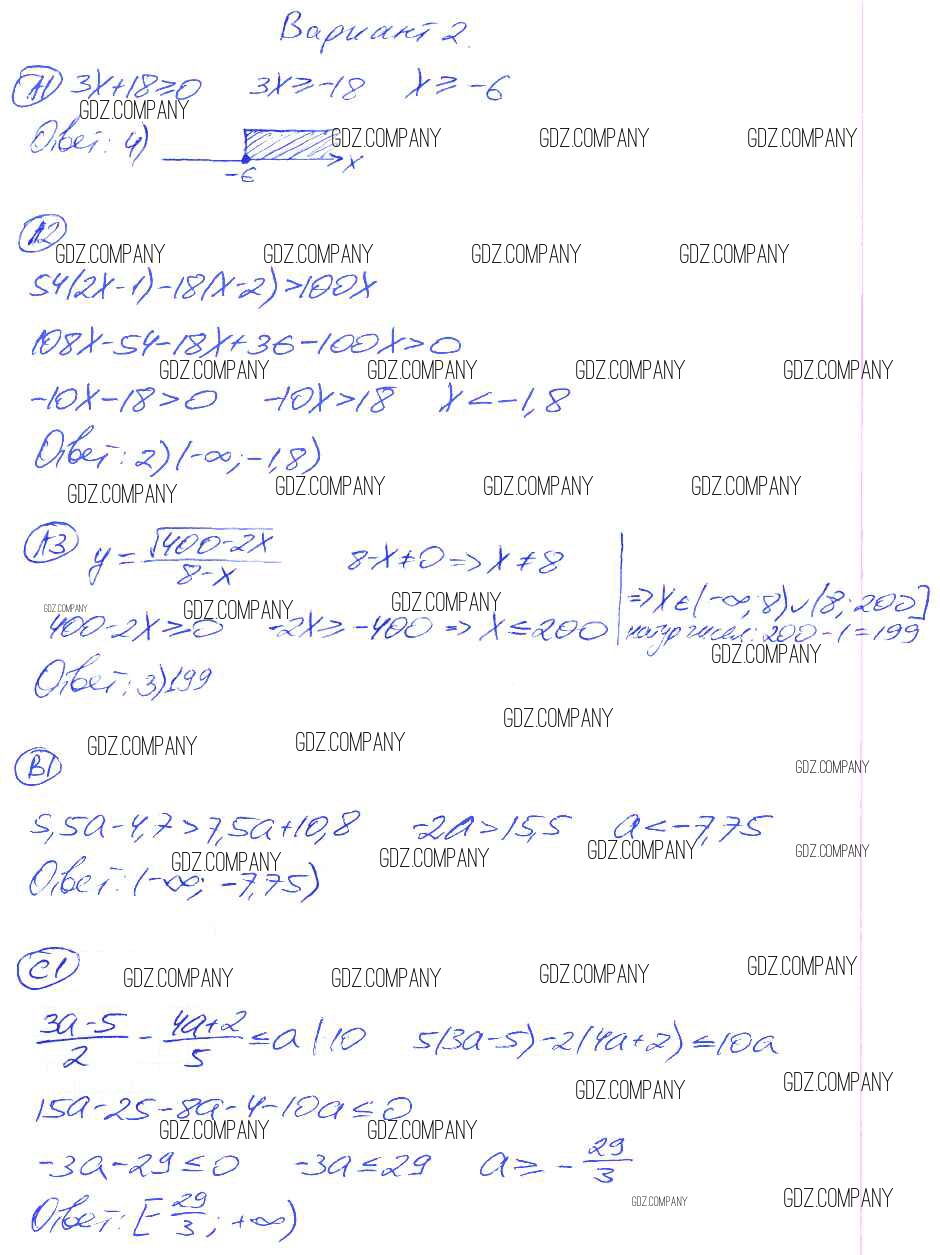 Вариант 2.
А1 3x+18≥0 3x≥-18 x≥-6
GDZ.COMPANY
Ответ: 4)
GDZ.COMPANY GDZ.COMPANY GDZ.COMPANY
-6 x
А2
GDZ.COMPANY GDZ.COMPANY GDZ.COMPANY GDZ.COMPANY
54(2x-1)-18(x-2)>100x
108x-54-18x+36-100x>0
GDZ.COMPANY GDZ.COMPANY GDZ.COMPANY GDZ.COMPANY
-10x-18>0 -10x>18 x<-1,8
Ответ: 2) (-∞; -1,8)
GDZ.COMPANY GDZ.COMPANY GDZ.COMPANY GDZ.COMPANY
А3 y = √(400-2x)/(8-x) 8-x≠0 => x≠8
GDZ.COMPANY GDZ.COMPANY GDZ.COMPANY
=> x∈(-∞; 8)∪(8; 200]
400-2x≥0 -2x≥-400 => x≤200
натур чисел: 200-1=199
GDZ.COMPANY
Ответ: 3) 199
GDZ.COMPANY
GDZ.COMPANY GDZ.COMPANY
В1
GDZ.COMPANY
5,5a-4,7>7,5a+10,8 -2a>15,5 a<-7,75
GDZ.COMPANY GDZ.COMPANY GDZ.COMPANY GDZ.COMPANY
Ответ: (-∞; -7,75)
С1
GDZ.COMPANY GDZ.COMPANY GDZ.COMPANY GDZ.COMPANY
(3a-5)/2 - (4a+2)/5 ≤ a |10 5(3a-5)-2(4a+2)≤10a
GDZ.COMPANY GDZ.COMPANY
15a-25-8a-4-10a≤0
GDZ.COMPANY GDZ.COMPANY
-3a-29≤0 -3a≤29 a≥-29/3
GDZ.COMPANY GDZ.COMPANY
Ответ: [-29/3; +∞)